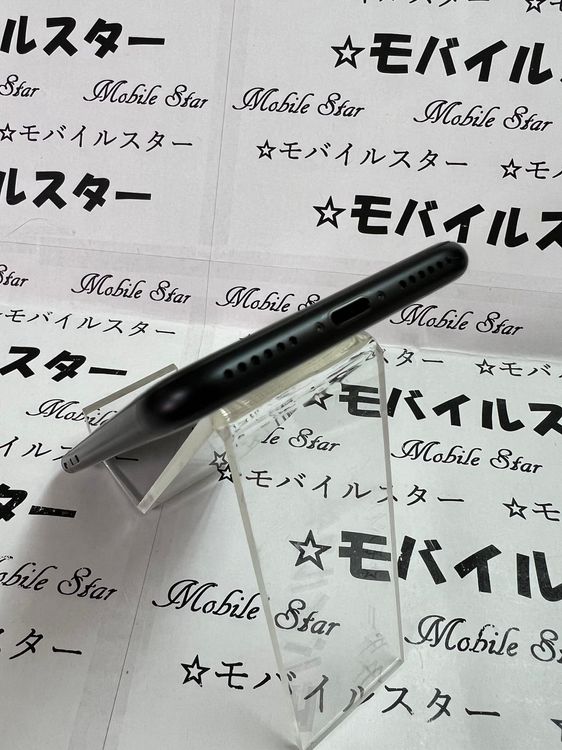 ルスター
☆モバイル
Star
Mobile Star
Mobile Star
Mobile Star
☆モバイルスター
☆モバイルスター
☆モバ
ルスター
☆モバイルス
Mobile Star
Mobile Star
Mobile Star
モバイルスター
☆モバ
ルスター
☆モバイルス
Mobile
Star
Mobile Star
☆モバイルスター
☆モバ
ター
☆モバイル
Mobile Star
Mobile Star
Mobile St
スター
☆モバイルスター